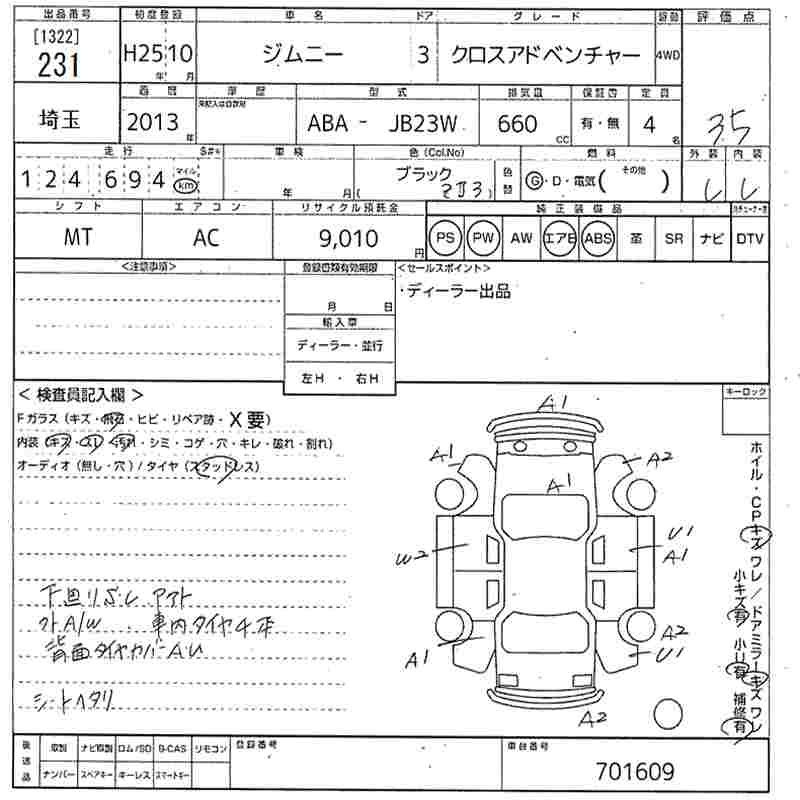 出品番号 初度登録 車名 ドア グレード 駆動 評価点
[1322] 231 H25 10 年 月 ジムニー 3 クロスアドベンチャー 4WD
西暦 車歴 型式 排気量 保証書 定員
未記入は自家用
埼玉 2013 年 ABA - JB23W 660 CC 有・無 4 名 3.5
走行 S#* 車検 色(Col.No) 燃料 外装 内装
124,694 マイル km 年 月 ブラック ( ZJ3 ) 色替 G・D・電気( その他 )
シフト エアコン リサイクル預託金 純正装備品
MT AC 9,010 円 PS PW AW エアB ABS 革 SR ナビ DTV
<注意事項> 登録書類有効期限 <セールスポイント>
月 日 ・ディーラー出品
輸入車
ディーラー・並行
左H ・ 右H
<検査員記入欄> キーロック
Fガラス(キズ・飛石・ヒビ・リペア跡・X要)
内装(キズ・スレ・汚れ・シミ・コゲ・穴・キレ・破れ・割れ)
オーディオ(無し・穴)/タイヤ(スタッドレス)
A1
A1 A2
A1
W2 U1
A1
下廻りサビ アフト
外A/W . 車内タイヤ4本
背面タイヤカバーAU
シートヘタリ
A1 A2
U1
A2
ホイル・CPキズ ワレ/ドアミラーキズ ワレ
小キズ有 小U有 補修有
後送品 取説 ナビ取説 ロム/SD B-CAS リモコン 登録番号 車台番号
ナンバー スペアキー キーレス スマートキー 701609